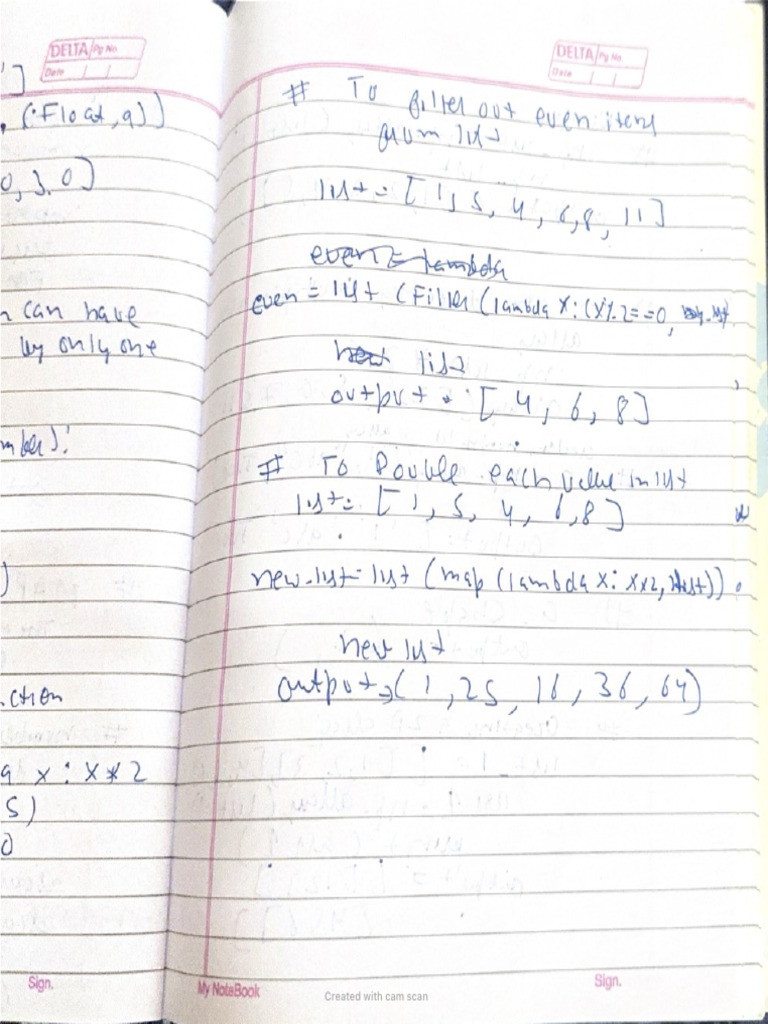 DELTA Pg No.
Date
']
. (Float, a))
0, 3.0]
n can have
by only one
mber):
)
ction
a x : x * 2
5)
0
Sign.
DELTA Pg No.
Date
# To filter out even items
from list
list = [ 1, 5, 4, 6, 8, 11 ]
even = lambda
even = list (Filter (lambda x : (x % 2 == 0,
list
output = [ 4, 6, 8 ]
# To Double each value in list
list = [ 1, 5, 4, 6, 8 ]
new-list = list (map (lambda x : x**2, list))
new list
output → ( 1, 25, 16, 36, 64)
My NoteBook
Sign.
Created with cam scan